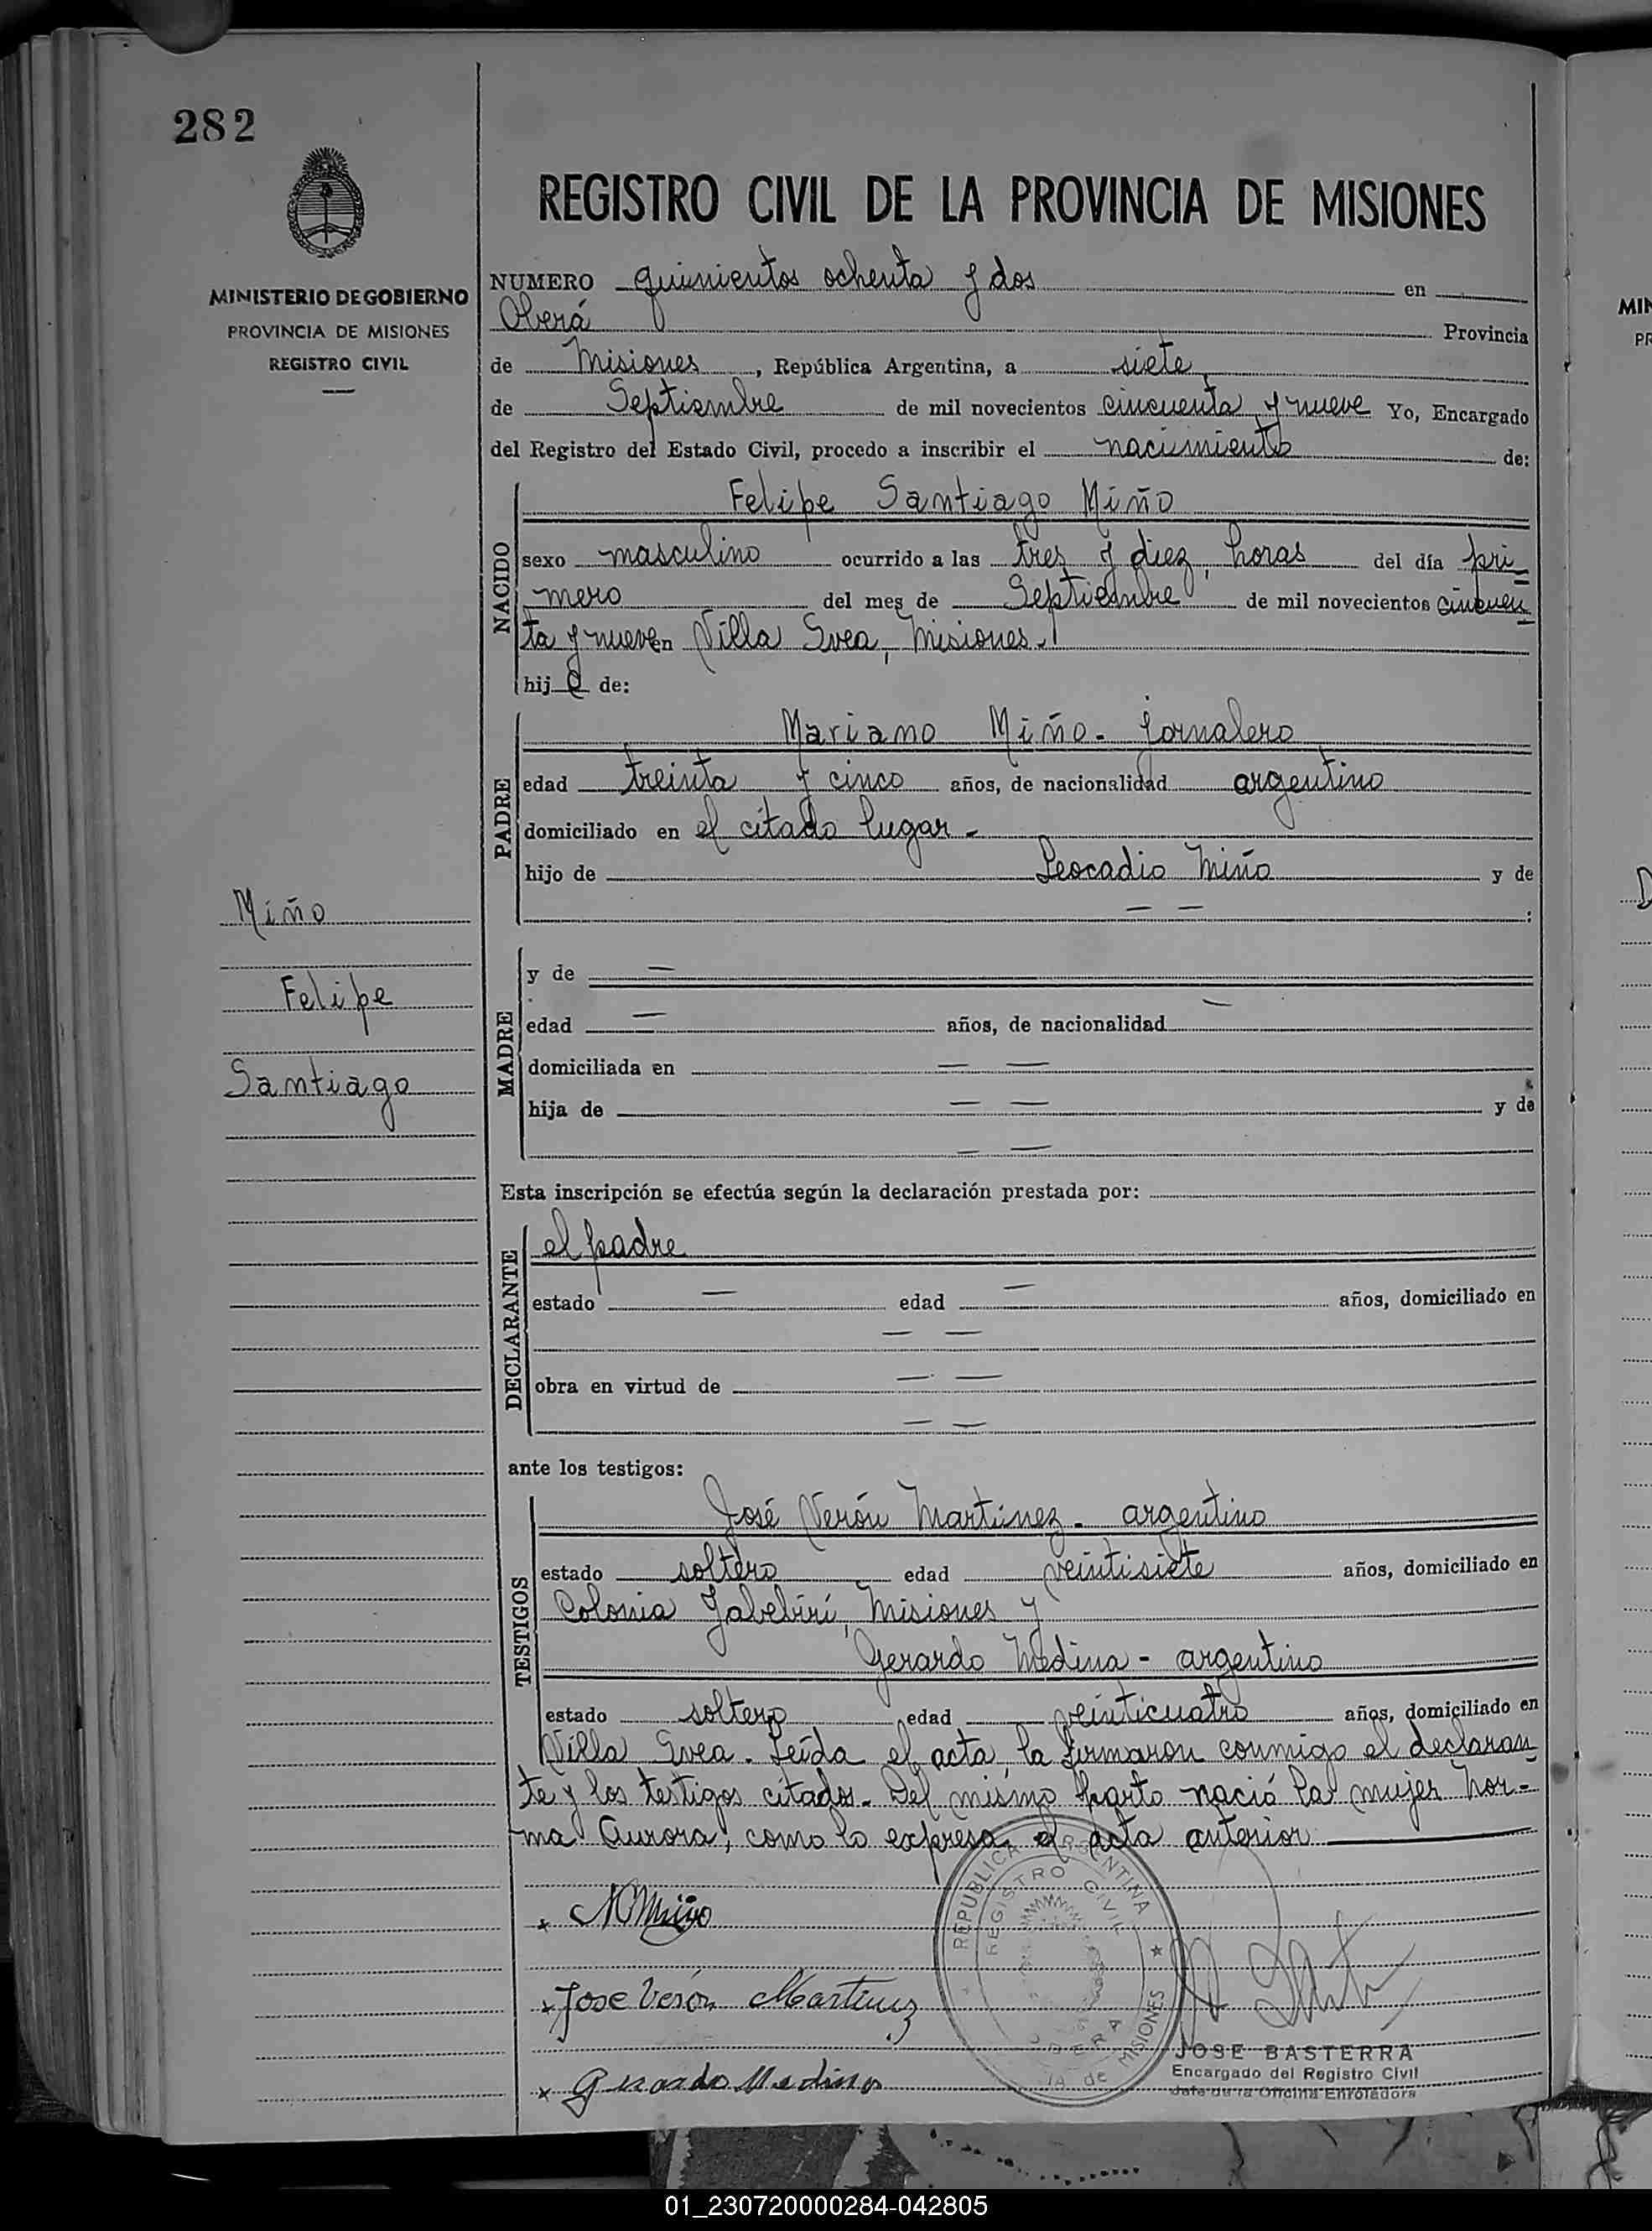 282
REGISTRO CIVIL DE LA PROVINCIA DE MISIONES
MINISTERIO DE GOBIERNO
PROVINCIA DE MISIONES
REGISTRO CIVIL
NUMERO quinientos ochenta y dos en
Oberá Provincia
de Misiones, República Argentina, a siete
de Septiembre de mil novecientos cincuenta y nueve Yo, Encargado
del Registro del Estado Civil, procedo a inscribir el nacimiento de:
NACIDO
Felipe Santiago Miño
sexo masculino ocurrido a las tres y diez horas del día pri
mero del mes de Septiembre de mil novecientos cincuen
ta y nueve en Villa Svea, Misiones.
hijo de:
PADRE
Mariano Miño - Jornalero
edad treinta y cinco años, de nacionalidad argentino
domiciliado en el citado lugar -
hijo de Leocadio Miño y de
— — :
Miño
Felipe
Santiago
MADRE
y de —
edad — años, de nacionalidad —
domiciliada en — —
hija de — — y de
— —
Esta inscripción se efectúa según la declaración prestada por:
DECLARANTE
el padre
estado — edad — años, domiciliado en
— —
obra en virtud de — —
— —
ante los testigos:
TESTIGOS
José Verón Martínez - argentino
estado soltero edad veintisiete años, domiciliado en
Colonia Yabebirí, Misiones y
Gerardo Medina - argentino
estado soltero edad veinticuatro años, domiciliado en
Villa Svea. Leída el acta, la firmaron conmigo el declaran
te y los testigos citados. Del mismo parto nació la mujer Nor-
ma Aurora, como lo expresa el acta anterior
x MMiño
x Jose Verón Martinez
x Gerardo Medina
REPUBLICA ARGENTINA
REGISTRO CIVIL
OBERA
MISIONES
JOSE BASTERRA
Encargado del Registro Civil
Jefe de la Oficina Enroladora
MIN
PR
D
01_230720000284-042805